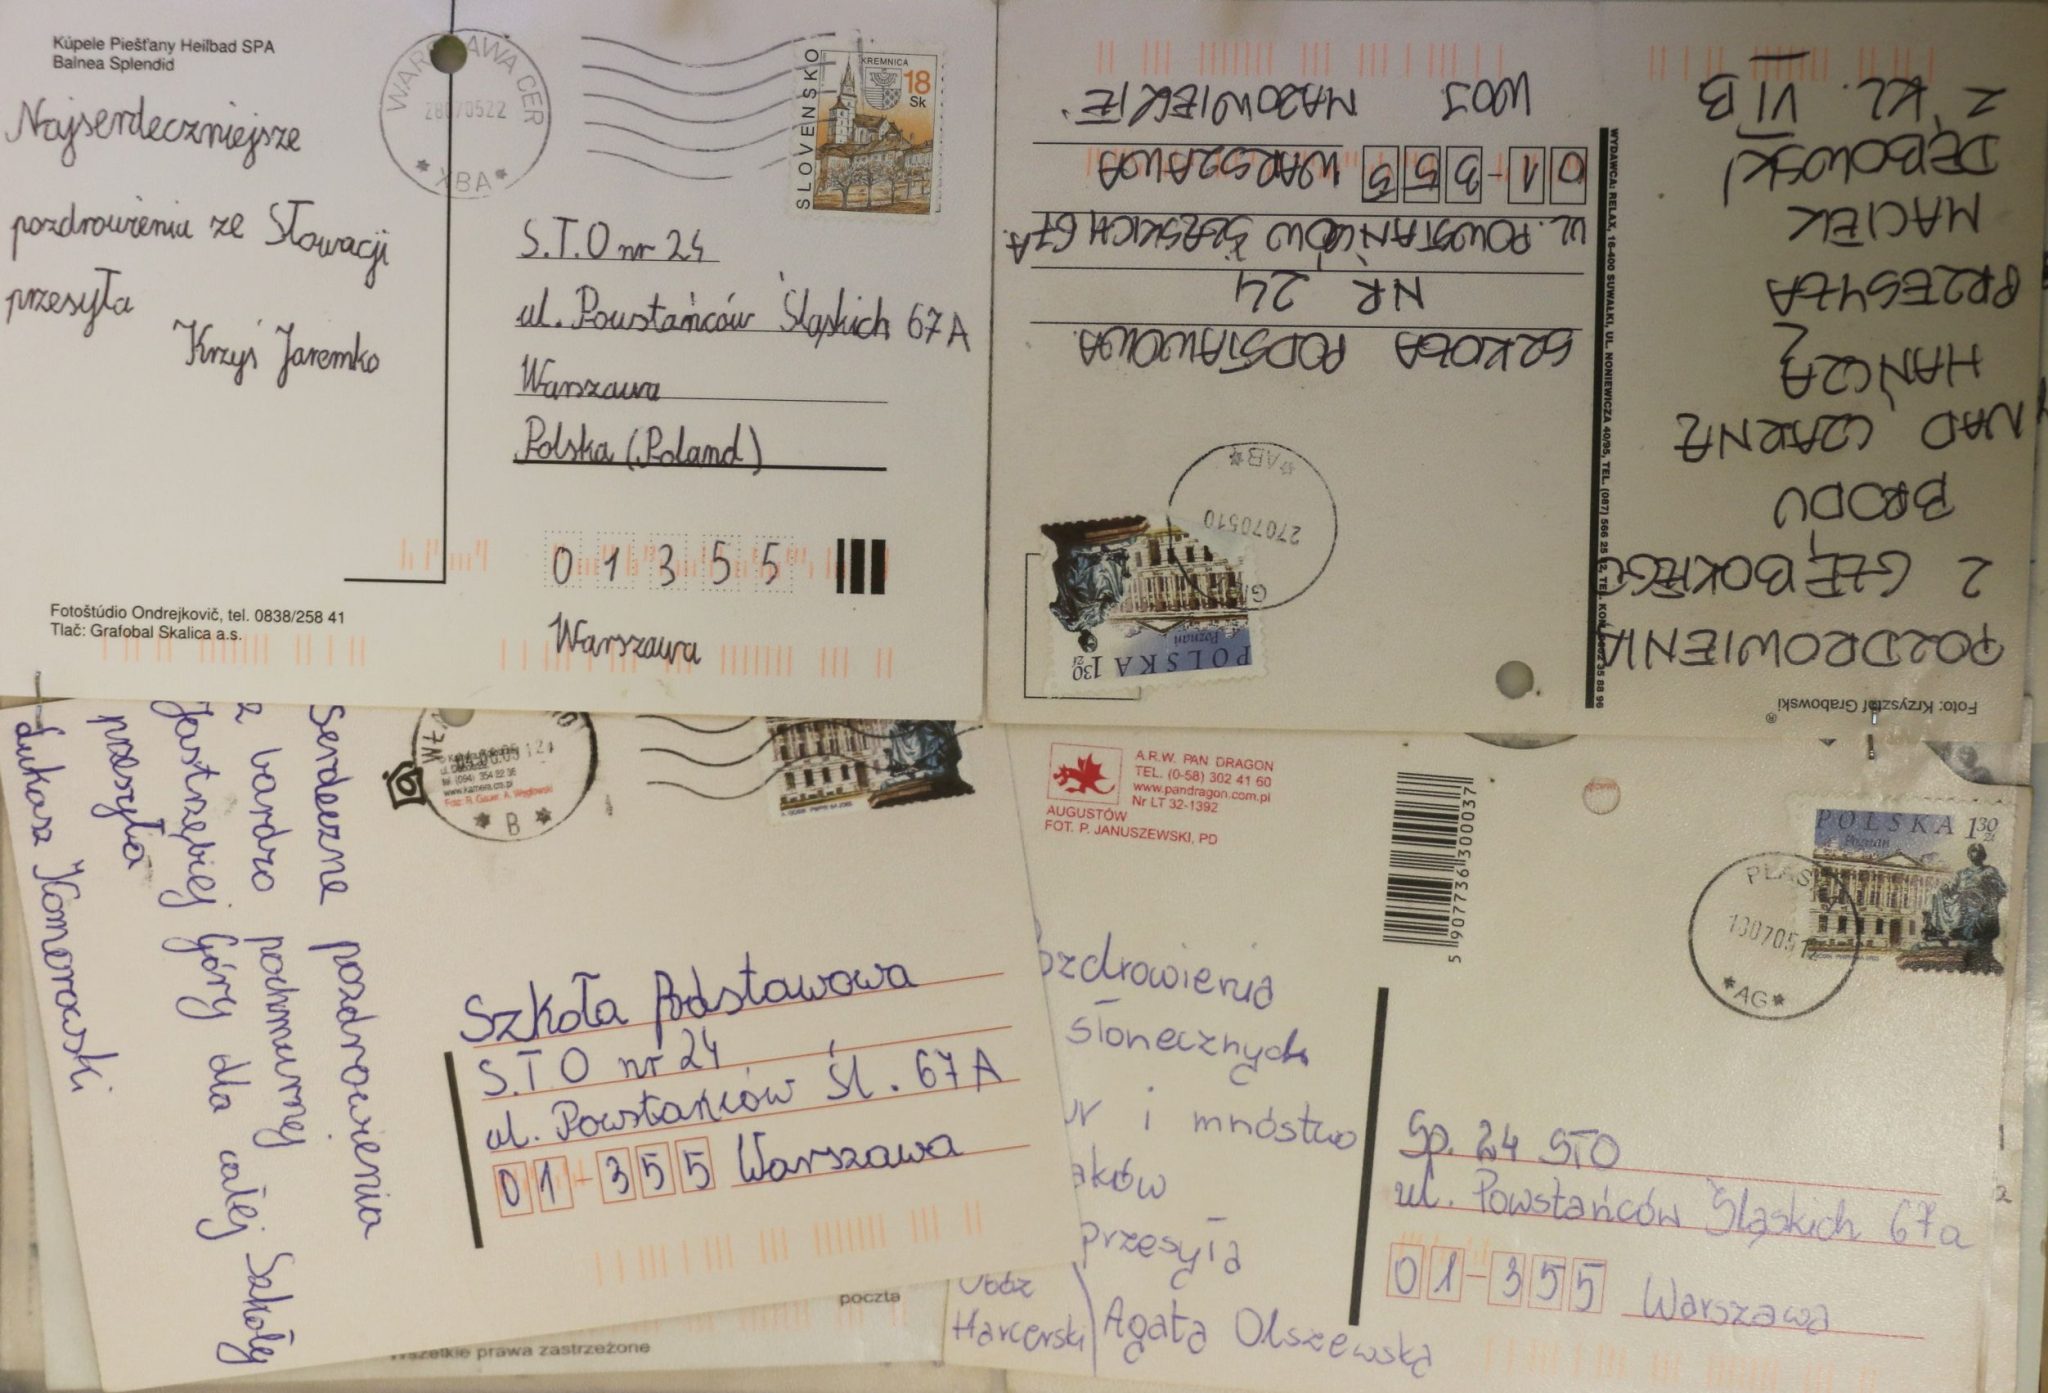 Kúpele Piešťany Heilbad SPA
Balnea Splendid
Najserdeczniejsze
pozdrowienia ze Słowacji
przesyła
Krzyś Jaremko
Fotoštúdio Ondrejkovič, tel. 0838/258 41
Tlač: Grafobal Skalica a.s.
WARSZAWA CER
28070522
* XBA *
SLOVENSKO
KREMNICA
18
Sk
S.T.O nr 24
ul. Powstańców Śląskich 67A
Warszawa
Polska (Poland)
01355
Warszawa
Foto: Krzysztof Grabowski
®
POZDROWIENIA
Z GŁĘBOKIEGO
BRODU
NAD CZARNĄ
HAŃCZĄ
PRZESYŁA
MACIEK
DĘBOWSKI
Z KL. VI B
WYDAWCA: RELAX, 16-400 SUWAŁKI, UL. NONIEWICZA 40/95, TEL. (087) 566 25
88 96
POLSKA 130 zł
Poznań
27070510
*AB*
SZKOŁA PODSTAWOWA
NR 24
UL. POWSTAŃCÓW ŚLĄSKICH 67A
01-355 WARSZAWA
WOJ. MAZOWIECKIE
Serdeczne pozdrowienia
z bardzo pochmurnej
Jastrzębiej Góry dla całej Szkoły
przesyła
Łukasz Komorowski
tel. (094) 354 22 36
www.kamera.crs.pl
* B *
Szkoła Podstawowa
S.T.O nr 24
ul. Powstańców Śl. 67A
01-355 Warszawa
poczta
Wszelkie prawa zastrzeżone
A.R.W. PAN DRAGON
TEL. (0-58) 302 41 60
www.pandragon.com.pl
Nr LT 32-1392
AUGUSTÓW
FOT. P. JANUSZEWSKI, PD
5 907736 300037
ozdrowienia
słonecznych
i mnóstwo
aków
przesyła
Obóz
Harcerski
Agata Olszewska
POLSKA 130 zł
Poznań
PŁAS
*AG*
Sp. 24 STO
ul. Powstańców Śląskich 67a
01-355 Warszawa